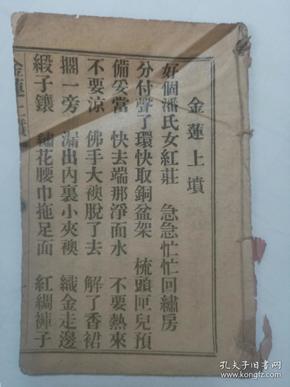 金蓮上墳
好個潘氏女紅莊　急急忙忙回繡房
分付聲了環快取銅盆架　梳頭匣兒預
備妥當　快去端那淨面水　不要熱來
不要涼　佛手大襖脫了去　解了香裙
擱一旁　漏出內裏小夾襖　織金走邊
緞子鑲　繡花腰巾拖足面　紅綢褲子
金蓮上墳
孔夫子旧书网